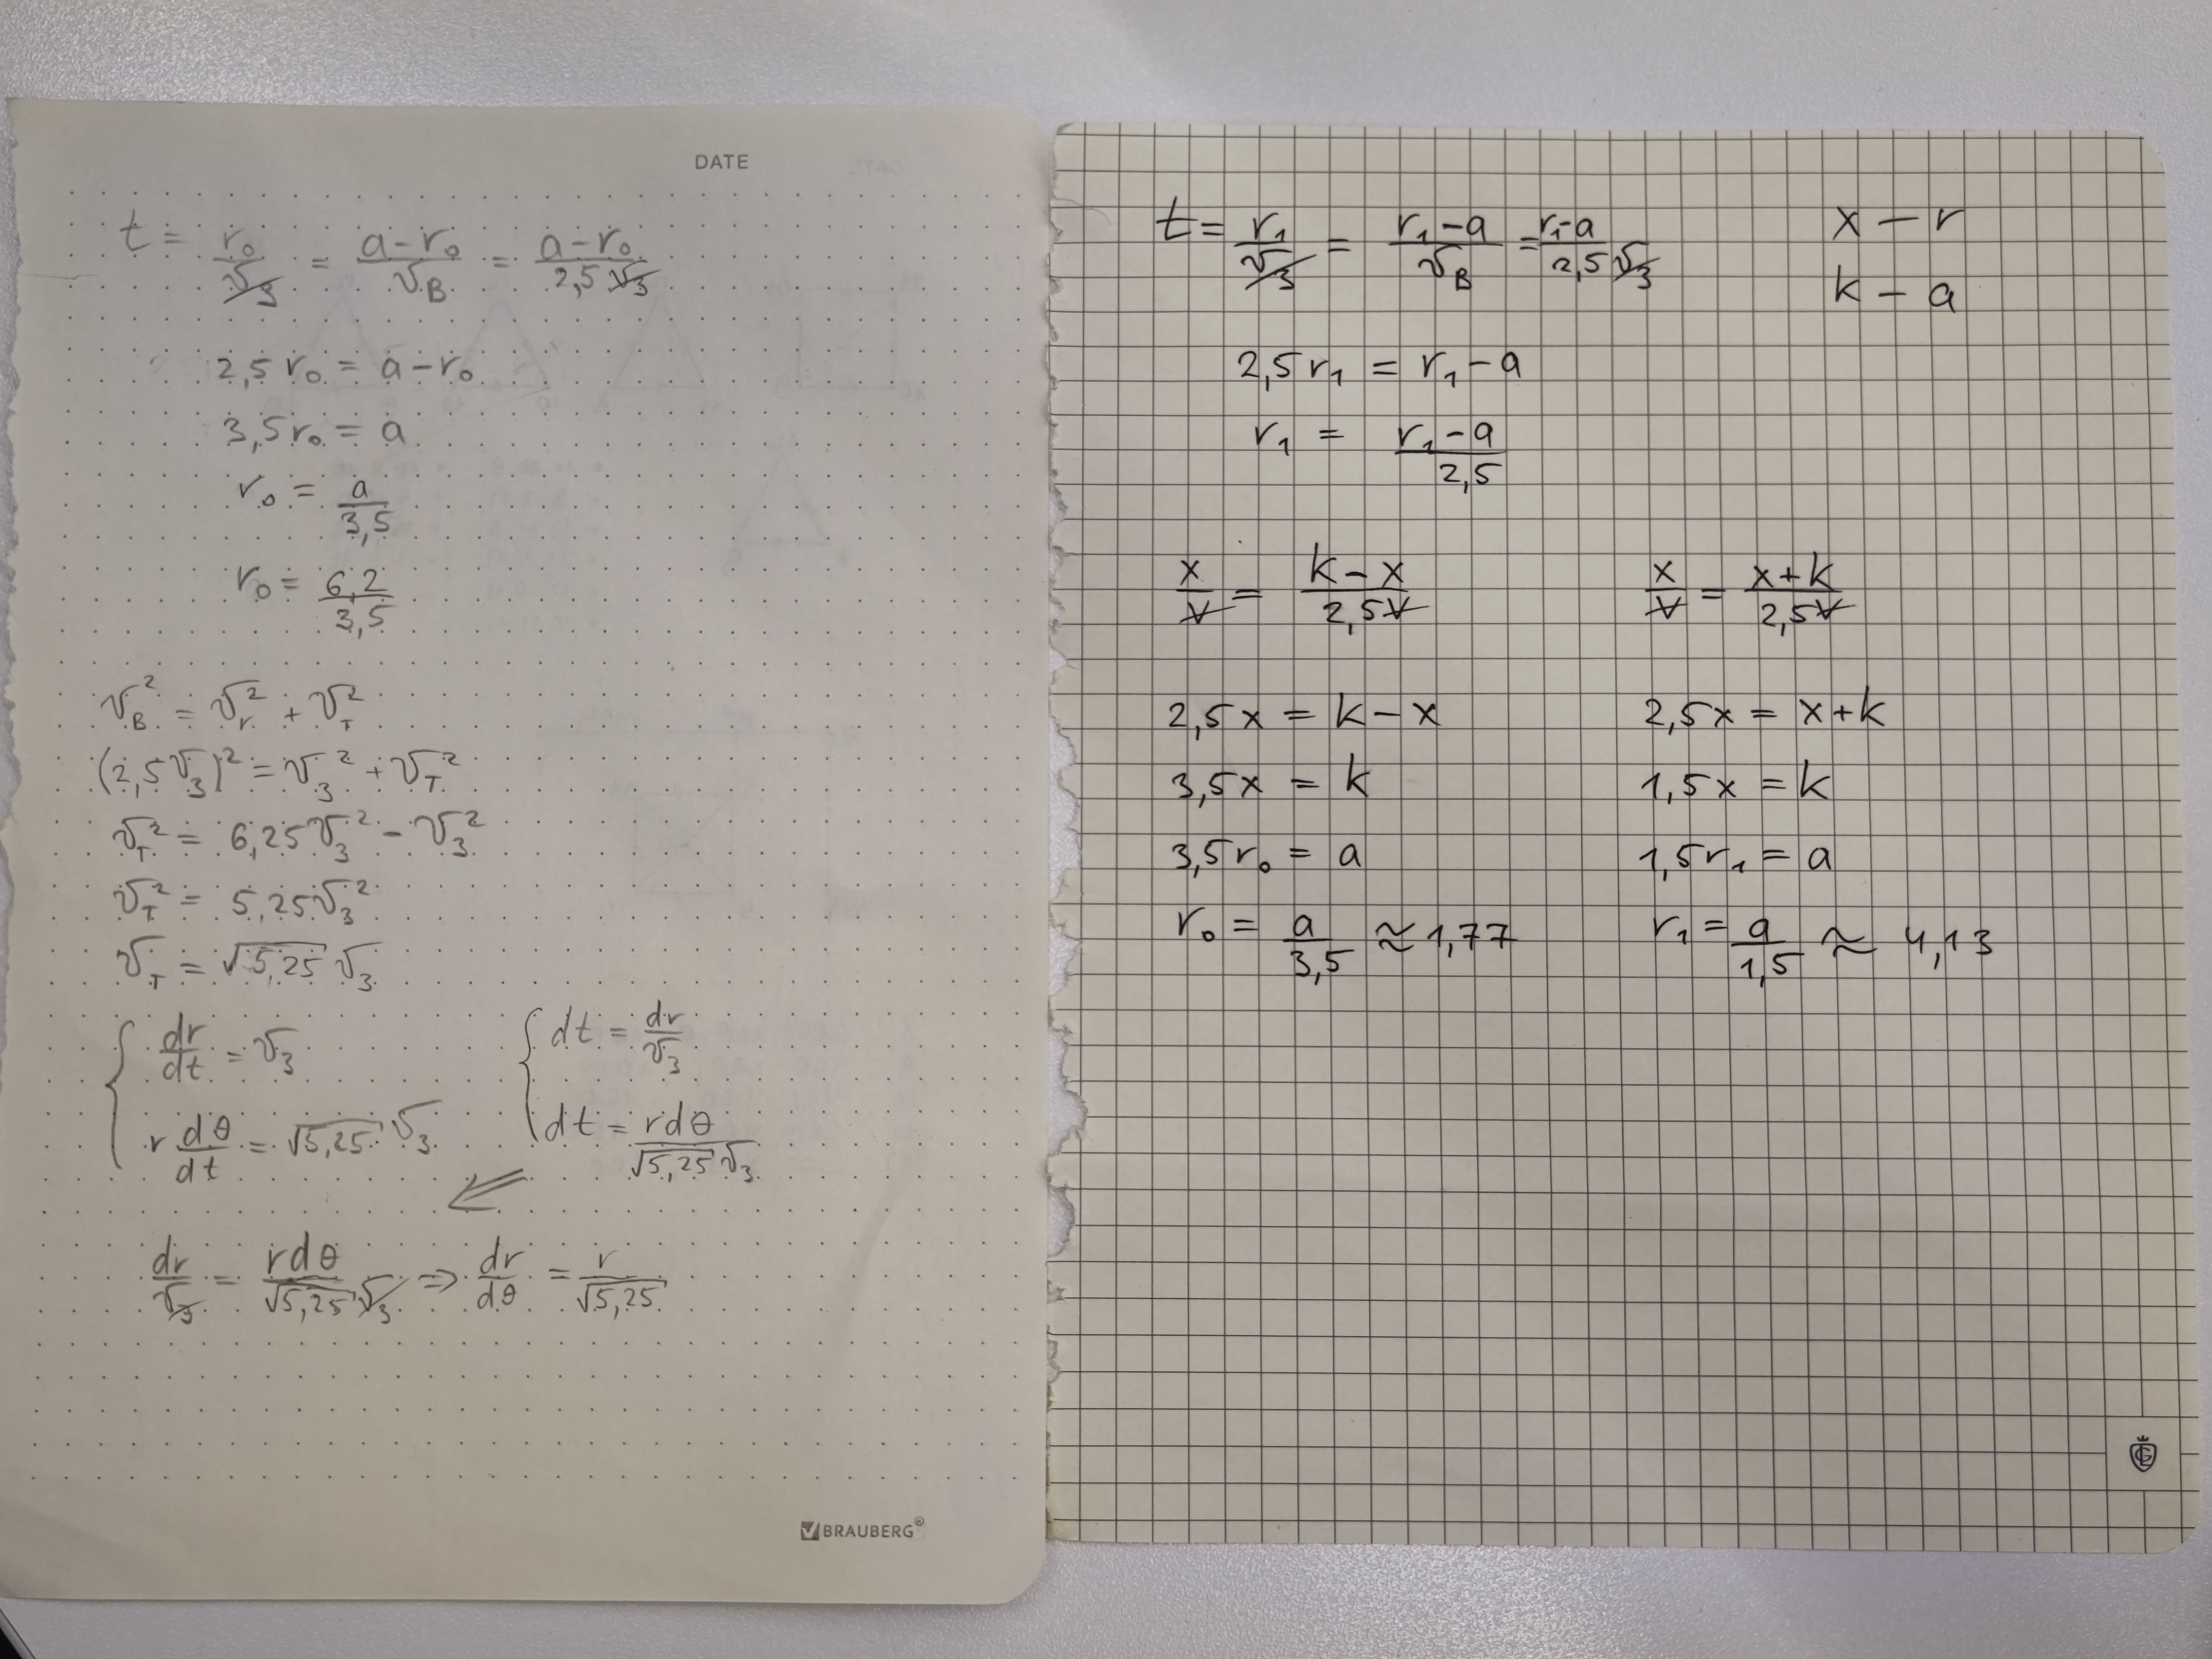 DATE
t = r₀/v₃ = (a-r₀)/v_B = (a-r₀)/(2,5v₃)
2,5r₀ = a-r₀
3,5r₀ = a
r₀ = a/3,5
r₀ = 6,2/3,5
v_B² = v_r² + v_T²
(2,5v₃)² = v₃² + v_T²
v_T² = 6,25v₃² - v₃²
v_T² = 5,25v₃²
v_T = √5,25 v₃
{ dr/dt = v₃ { dt = dr/v₃
r dθ/dt = √5,25 v₃ dt = rdθ/(√5,25 v₃)
⇙
dr/v₃ = rdθ/(√5,25 v₃) ⇒ dr/dθ = r/√5,25
BRAUBERG®
t = r₁/v₃ = (r₁-a)/v_B = (r₁-a)/(2,5v₃)
x - r
k - a
2,5r₁ = r₁-a
r₁ = (r₁-a)/2,5
x/v = (k-x)/(2,5v) x/v = (x+k)/(2,5v)
2,5x = k-x 2,5x = x+k
3,5x = k 1,5x = k
3,5r₀ = a 1,5r₁ = a
r₀ = a/3,5 ≈ 1,77 r₁ = a/1,5 ≈ 4,13